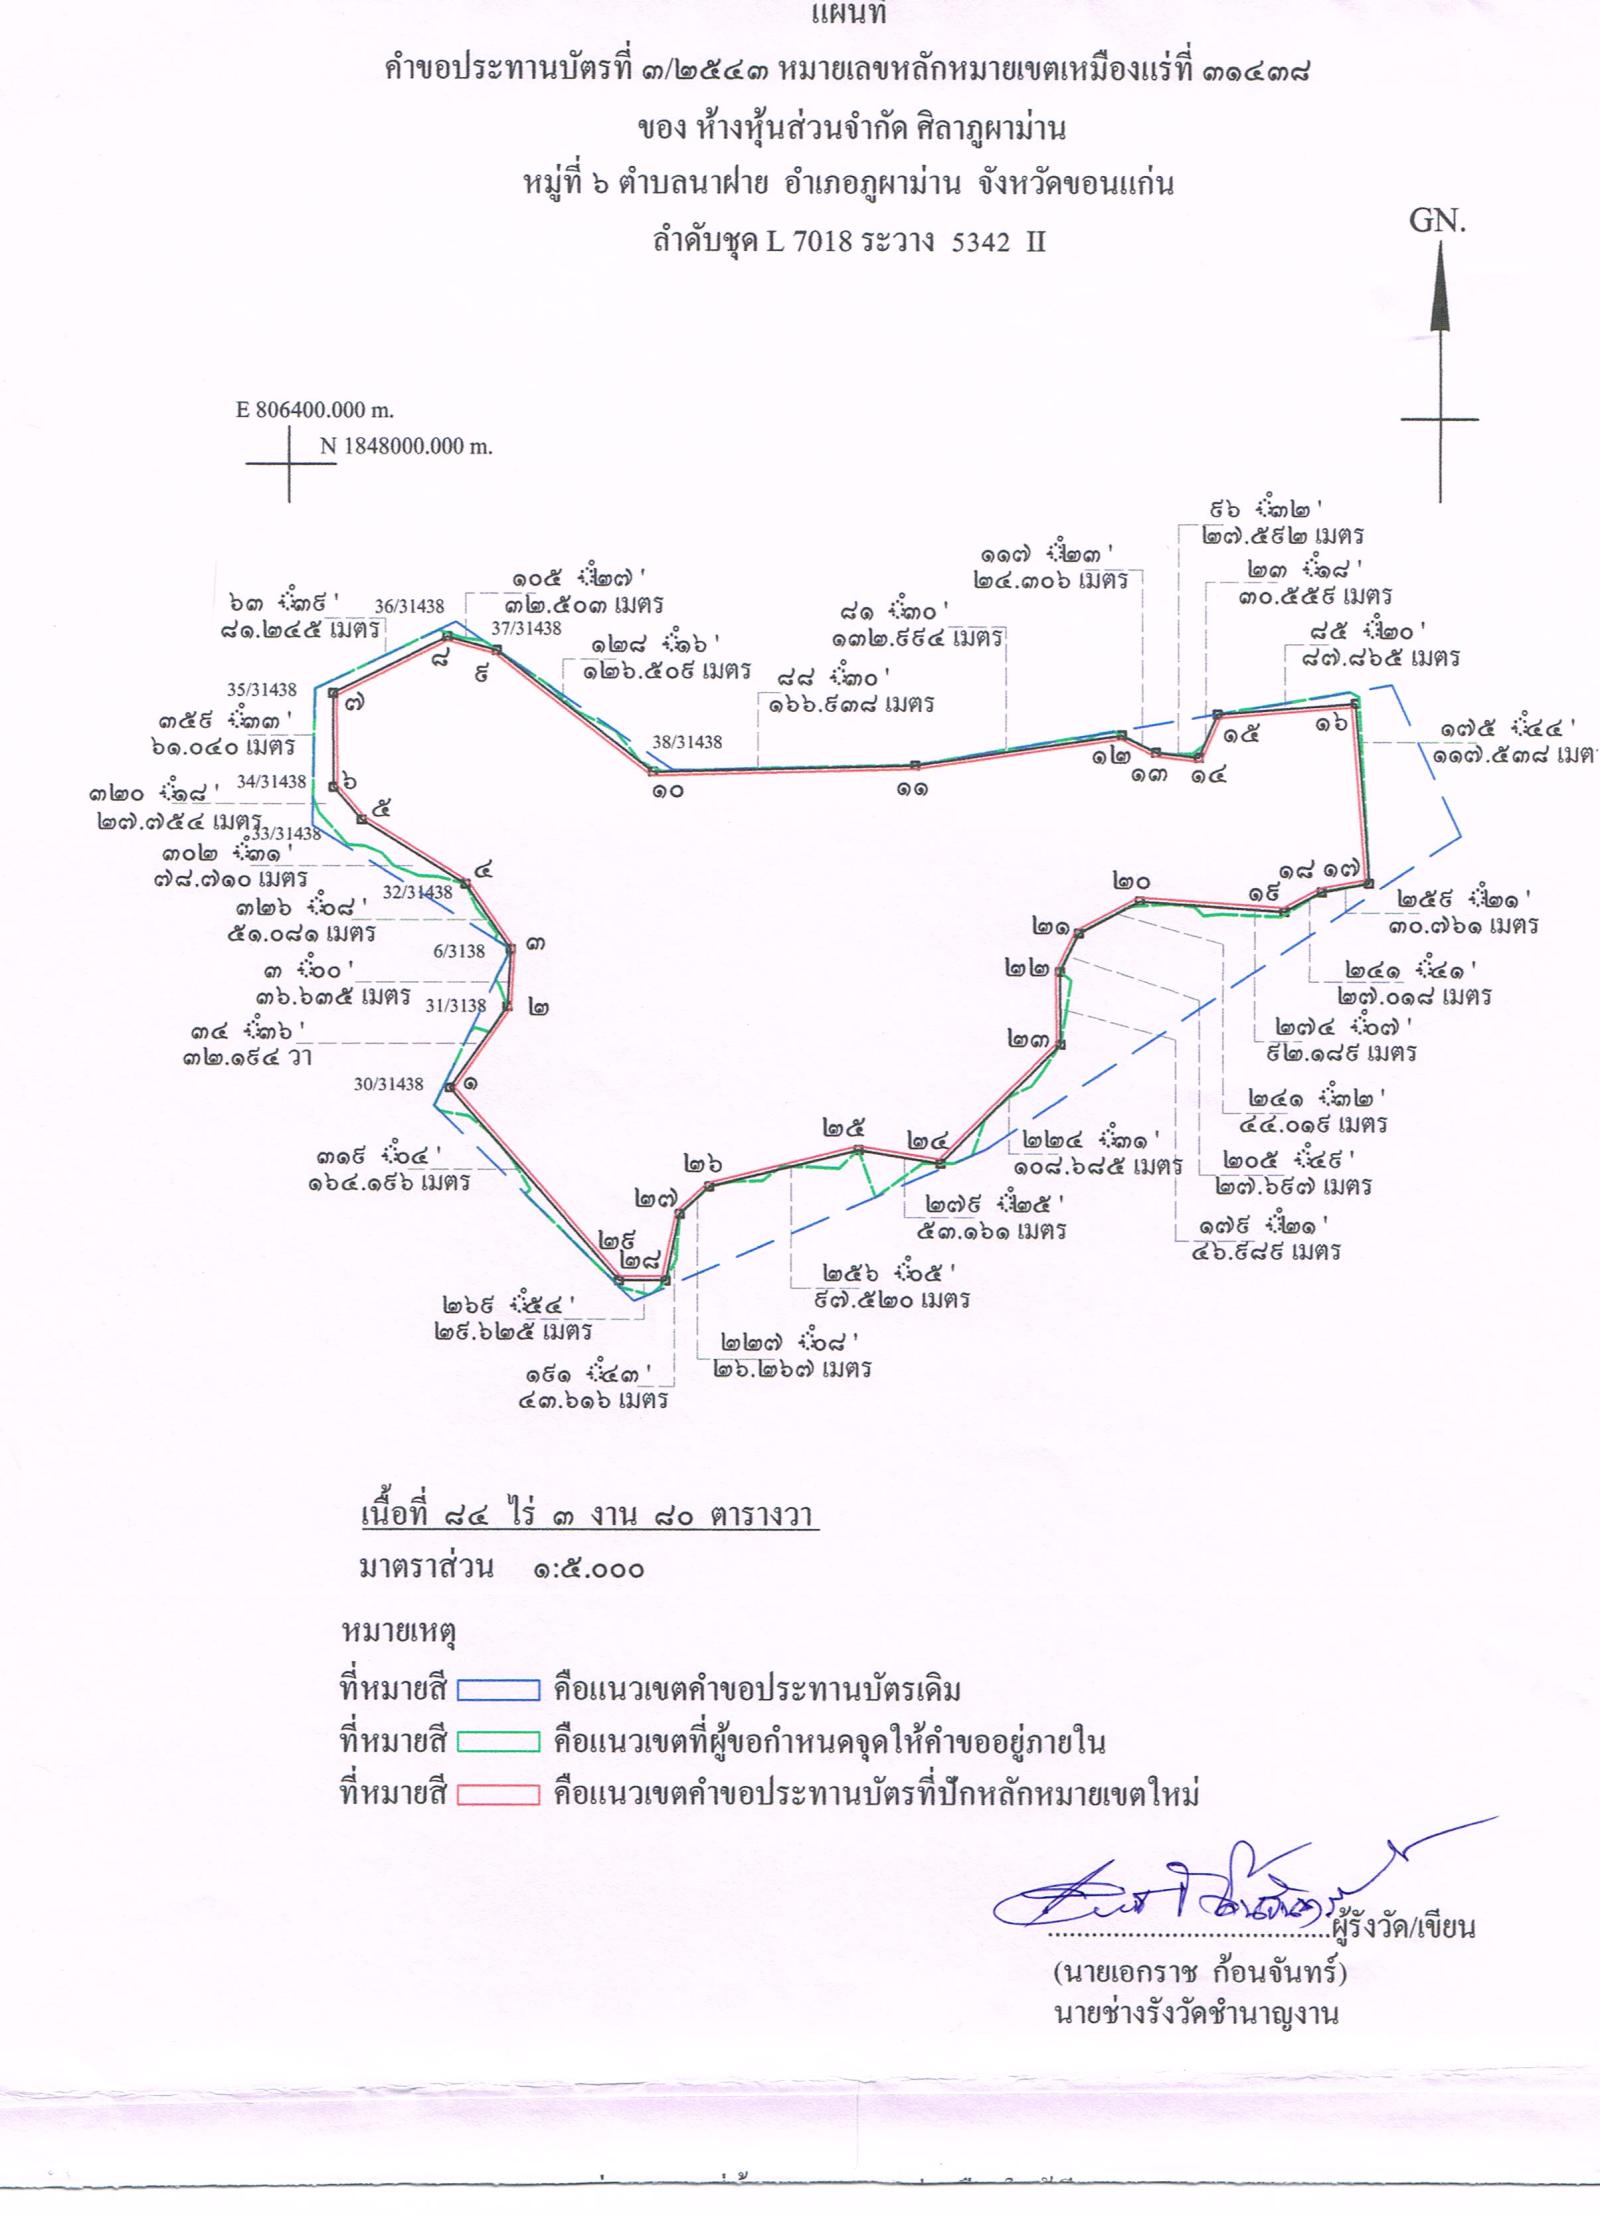 แผนที่
คำขอประทานบัตรที่ ๓/๒๕๔๓ หมายเลขหลักหมายเขตเหมืองแร่ที่ ๓๑๔๓๘
ของ ห้างหุ้นส่วนจำกัด ศิลาภูผาม่าน
หมู่ที่ ๖ ตำบลนาฝาย อำเภอภูผาม่าน จังหวัดขอนแก่น
ลำดับชุด L 7018 ระวาง 5342 II
GN.
E 806400.000 m.
N 1848000.000 m.
๙๖ ํ๓๒'
๒๗.๕๙๒ เมตร
๑๑๗ ํ๒๓'
๒๔.๓๐๖ เมตร
๒๓ ํ๑๘'
๓๐.๕๕๙ เมตร
๑๐๕ ํ๒๗'
๓๒.๕๐๓ เมตร
๖๓ ํ๓๙'
๘๑.๒๔๕ เมตร
36/31438
37/31438
๘๑ ํ๓๐'
๑๓๒.๙๙๔ เมตร
๘๕ ํ๒๐'
๘๗.๘๖๕ เมตร
๑๒๘ ํ๑๖'
๑๒๖.๕๐๙ เมตร
๘๘ ํ๓๐'
๑๖๖.๙๓๘ เมตร
35/31438
๓๕๙ ํ๓๓'
๖๑.๐๔๐ เมตร
38/31438
๑๗๕ ํ๔๔'
๑๑๗.๕๓๘ เมต
34/31438
๓๒๐ ํ๑๘'
๒๗.๗๕๔ เมตร
33/31438
๓๐๒ ํ๓๑'
๗๘.๗๑๐ เมตร
32/31438
๓๒๖ ํ๐๘'
๕๑.๐๘๑ เมตร
6/3138
๓ ํ๐๐'
๓๖.๖๓๕ เมตร
31/3138
๓๔ ํ๓๖'
๓๒.๑๙๔ วา
30/31438
๗
๘
๙
๑๐
๑๑
๑๒
๑๓
๑๔
๑๕
๑๖
๖
๕
๔
๓
๒
๑
๑๘
๑๗
๑๙
๒๐
๒๑
๒๒
๒๓
๒๔
๒๕
๒๖
๒๗
๒๘
๒๙
๒๕๙ ํ๒๑'
๓๐.๗๖๑ เมตร
๒๔๑ ํ๔๑'
๒๗.๐๑๘ เมตร
๒๗๔ ํ๐๗'
๙๒.๑๘๙ เมตร
๒๔๑ ํ๓๒'
๔๔.๐๑๙ เมตร
๒๐๕ ํ๔๙'
๒๗.๖๙๗ เมตร
๑๗๙ ํ๒๑'
๔๖.๙๘๙ เมตร
๒๒๔ ํ๓๑'
๑๐๘.๖๘๕ เมตร
๒๗๙ ํ๒๕'
๕๓.๑๖๑ เมตร
๒๕๖ ํ๐๕'
๙๗.๕๒๐ เมตร
๒๒๗ ํ๐๘'
๒๖.๒๖๗ เมตร
๑๙๑ ํ๔๓'
๔๓.๖๑๖ เมตร
๒๖๙ ํ๕๔'
๒๙.๖๒๕ เมตร
๓๑๙ ํ๐๔'
๑๖๔.๑๙๖ เมตร
เนื้อที่ ๘๔ ไร่ ๓ งาน ๘๐ ตารางวา
มาตราส่วน ๑:๕.๐๐๐
หมายเหตุ
ที่หมายสี คือแนวเขตคำขอประทานบัตรเดิม
ที่หมายสี คือแนวเขตที่ผู้ขอกำหนดจุดให้คำขออยู่ภายใน
ที่หมายสี คือแนวเขตคำขอประทานบัตรที่ปักหลักหมายเขตใหม่
........................................ผู้รังวัด/เขียน
(นายเอกราช ก้อนจันทร์)
นายช่างรังวัดชำนาญงาน